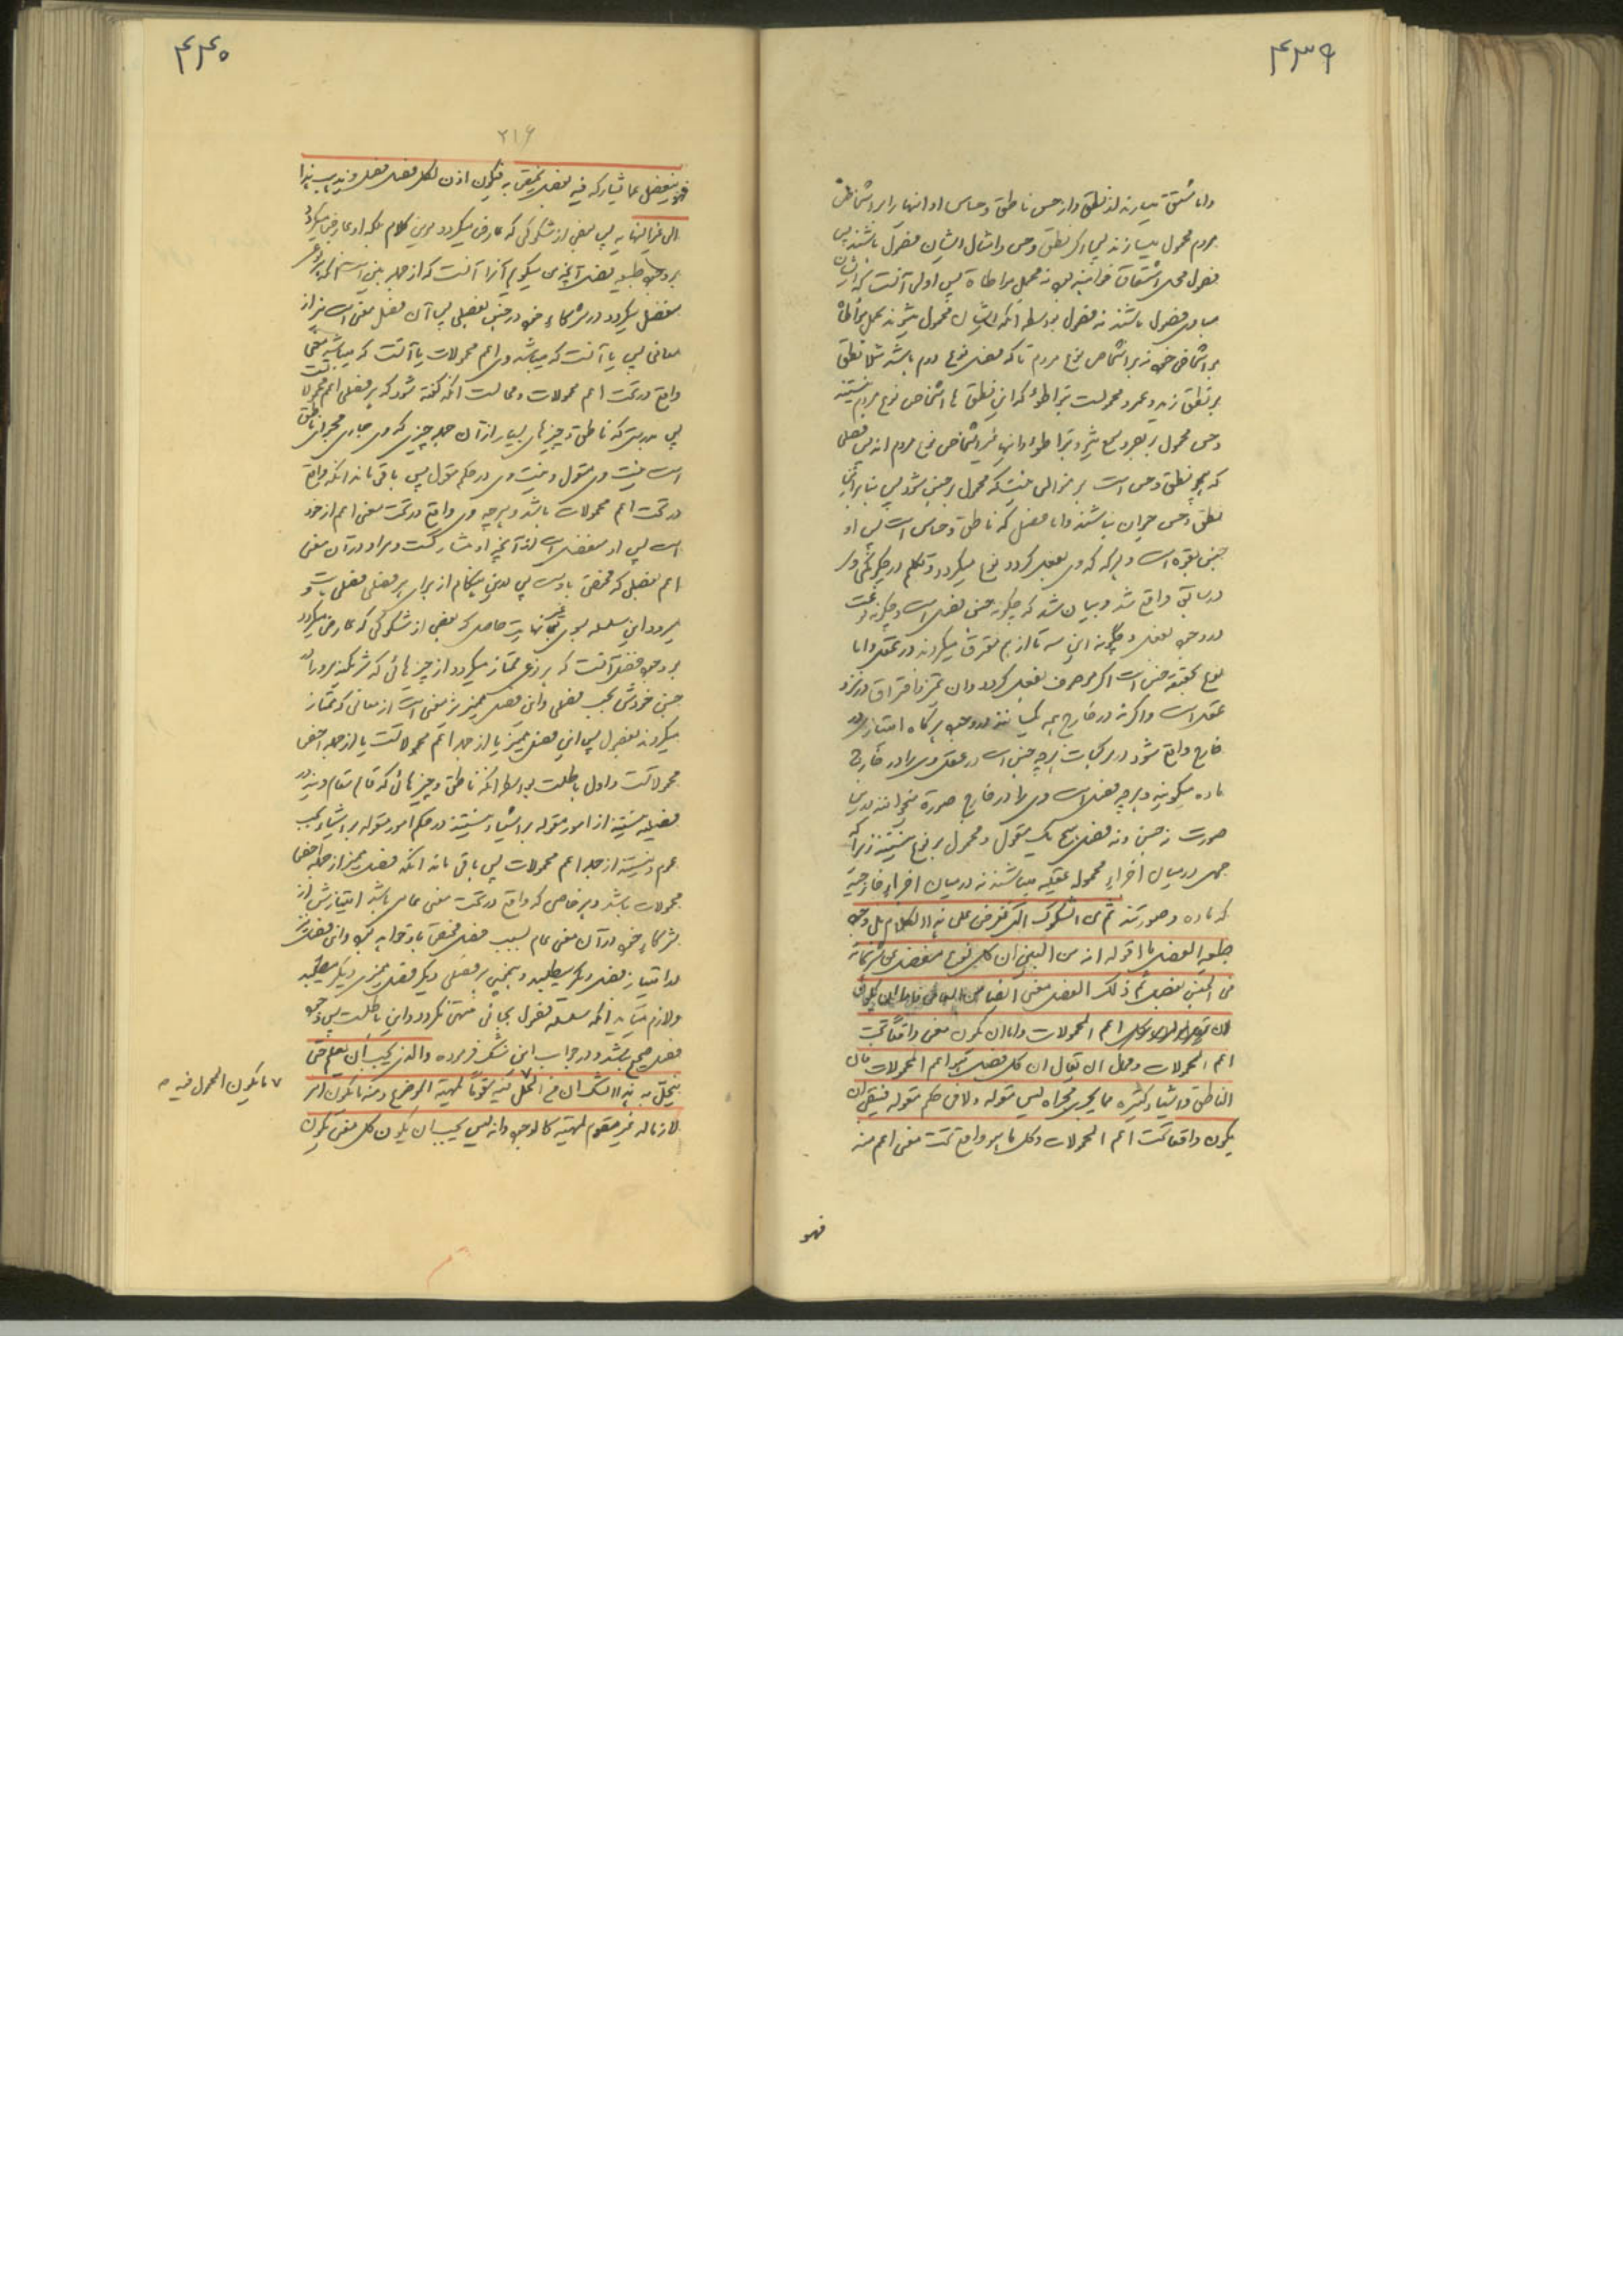 ۴۳۹
واما مشتق میسازند از نطق واز حس ناطق وحساس او انها را بر اشخاص
مردم محمول میسازند پس اگر نطق وحس وامثال ایشان فصول باشند پس
فصول محل اشتقاق خواهند بود نه محمل مواطاة پس اولی آنست که ایشان
مبادی فصول باشند نه فصول بواسطه آنکه ایشان محمول نمیشوند بحمل مواطاة
بر اشخاص خود نه بر اشخاص نوع مردم تا که فصل نوع مردم باشد مثلا نطق
بر نطق زید وعمرو محمولست بتواطؤ که این نطق ها اشخاص نوع مردم نیستند
وحس محمول بر بصر وسمع میشود بتواطؤ وانها غیر اشخاص نوع مردم اند پس فصلی
که همچو نطق وحس است بر منوالی نیست که محمول بر جنس شود پس بنابر آنجا
نطق وحس حیوان نباشند واما فصل که ناطق وحساس است پس او
جنس بقوه است وهرگاه که وی بفعل گردد نوع میگردد وتکلم در چگونگی وی
درسابق واقع شد وبیان شد که چگونه جنس فصل است وچگونه نوعست
در وجود بفعل وچگونه این سه تا از هم مفترق میگردند در تعقل واما
نوع بحقیقة جنس است اگر موصوف بفعل گردد وان تمیز وافتراق در نزد
عقل است واگر نه در خارج همه یکسانند در وجود هرگاه امتیاز در
خارج واقع شود در مرکبات هرچه جنس است در عقل وی را در خارج
ماده میگویند وهرچه فصل است وی را در خارج صورة میخوانند بدین
صورت نه جنس ونه فصل هیچ یک مقول ومحمول بر نوع نیستند زیرا که
حمل در میان اجزاء محموله عقلیه میباشند نه در میان اجزاء خارجیه
که ماده وصورتند ثم من الشکوک التی تعرض علی هذا الکلام بل وجود
طبیعة الفصل ما اقوله انه من البین ان کل نوع منفصل عن شرکائه
فی الجنس بفصل ثم ذلک الفصل معنی ایضا من المعانی فاما ان یکون
اعم المحمولات واما ان یکون معنی واقعاً تحت
اعم المحمولات ومحال ان یقال ان کل فصل هو اعم المحمولات فان
الناطق واشیاء کثیره مما یجری مجراه لیس مقوله ولا فی حکم مقوله فیبقی ان
یکون واقعا تحت اعم المحمولات وکل ما هو واقع تحت معنی اعم منه
فهو
۴۴۰
۲۱۶
فهو ینفصل عما یشارکه فیه بفصل یختص به فیکون اذن لکل فصل فصل ویذهب هذا
الی غیر النهایه پس بعضی از شکوکی که عارض میگردد بر این کلام بلکه او عارض میگردد
بر وجود طبیعه فصل آنچه می گویم آنرا آنست که از جمله بین است آنکه هر نوعی
منفصل میگردد از شرکاء خود در جنس بفصلی پس آن فصل معنی است نیز از
معانی پس یا آنست که میباشد وی اعم محمولات یا آنست که میباشد معنی
واقع در تحت اعم محمولات ومحالست آنکه گفته شود که هر فصلی اعم محمولاتست
پس بدرستی که ناطق وچیزهای بسیار از آن جمله چیزی که وی جاری مجرای ناطق
است نیست وی مقول ونیست وی در حکم مقول پس باقی ماند آنکه واقع
در تحت اعم محمولات باشد وهرچه وی واقع در تحت معنی اعم از خود
است پس او منفصل است از آنچه او مشارکست وی را در آن معنی
اعم بفصلی که مختص باوست پس درین هنگام از برای هر فصلی فصلی است و
میرود این سلسله بسوی غیر نهایت حاصل که بعضی از شکوکی که عارض میگردد
بر وجود فصل آنست که هر نوع ممتاز میگردد از چیزهائی که شریکند ویرا در
جنس خودش بحسب فصلی واین فصل ممیز نیز معنی است از معانی که ممتاز
میگردند بفصول پس این فصل ممیز یا از جمله اعم محمولاتست یا از جمله اخص
محمولاتست واول باطلست بواسطه آنکه ناطق وچیزهائی که قائم مقام ویند در
فصلیه نیستند از امور مقوله بر اشیاء ونیستند در حکم امور مقوله بر اشیاء بحسب
عموم ونیستند از جمله اعم محمولات پس باقی ماند آنکه فصل ممیز از جمله اخص
محمولات باشد وهر خاصی که واقع در تحت معنی عامی باشد امتیازش از
شرکاء خود در آن معنی عام بسبب فصل مختص باو خواهد بود واین فصل نیز
در امتیاز فصل دیگر میطلبد وهمچنین هر فصلی دیگر فصل ممیزی دیگر میطلبد
ولازم میآید آنکه سلسله فصول بجائی منتهی نگردد واین باطلست پس وجود
فصل صحیح نباشد ودر جواب این شک فرموده والذی یجب ان یعلم حتی
ینحل به هذا الشک ان من الحمل ۷ فیه مقوماً لمهیة الموضوع ومنه ما یکون امر
لازما له غیر مقوم لمهیته کالوجود وانه لیس یجب ان یکون کل معنی یکون
۷ ما یکون المحمول فیه